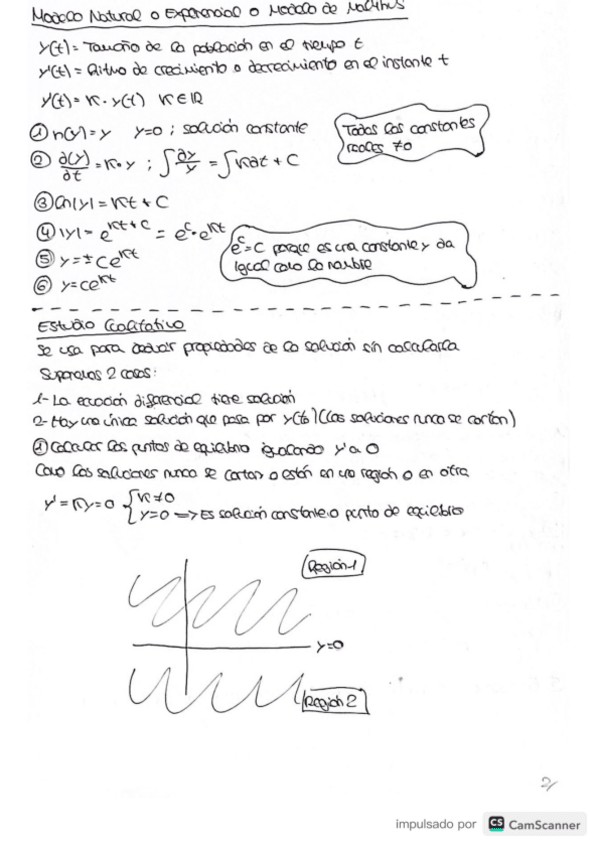 Modelo Natural o Exponencial o Modelo de Malthus
y(t) = Tamaño de la población en el tiempo t
y'(t) = Ritmo de crecimiento o decrecimiento en el instante t
y'(t) = K · y(t) K ∈ IR
① h(y) = y y=0 ; solución constante
Todas las constantes
reales ≠0
② ∂(y)/∂t = K · y ; ∫ ∂y/y = ∫ K∂t + C
③ Ln|y| = Kt + C
④ |y| = e^{Kt+C} = e^C · e^{Kt}
e^C = C porque es una constante y da
igual como la nombre
⑤ y = ± C e^{Kt}
⑥ y = c e^{Kt}
Estudio Cualitativo
Se usa para deducir propiedades de la solución sin calcularla
Suponemos 2 cosas:
1- La ecuación diferencial tiene solución
2- Hay una única solución que pasa por y(t₀) (las soluciones nunca se cortan)
① Calcular los puntos de equilibrio igualando y' a 0
Como las soluciones nunca se cortan o están en una región o en otra
y' = Ky = 0 { K ≠ 0
y=0 => Es solución constante o punto de equilibrio
Región 1
y=0
Región 2
2/
impulsado por CS CamScanner